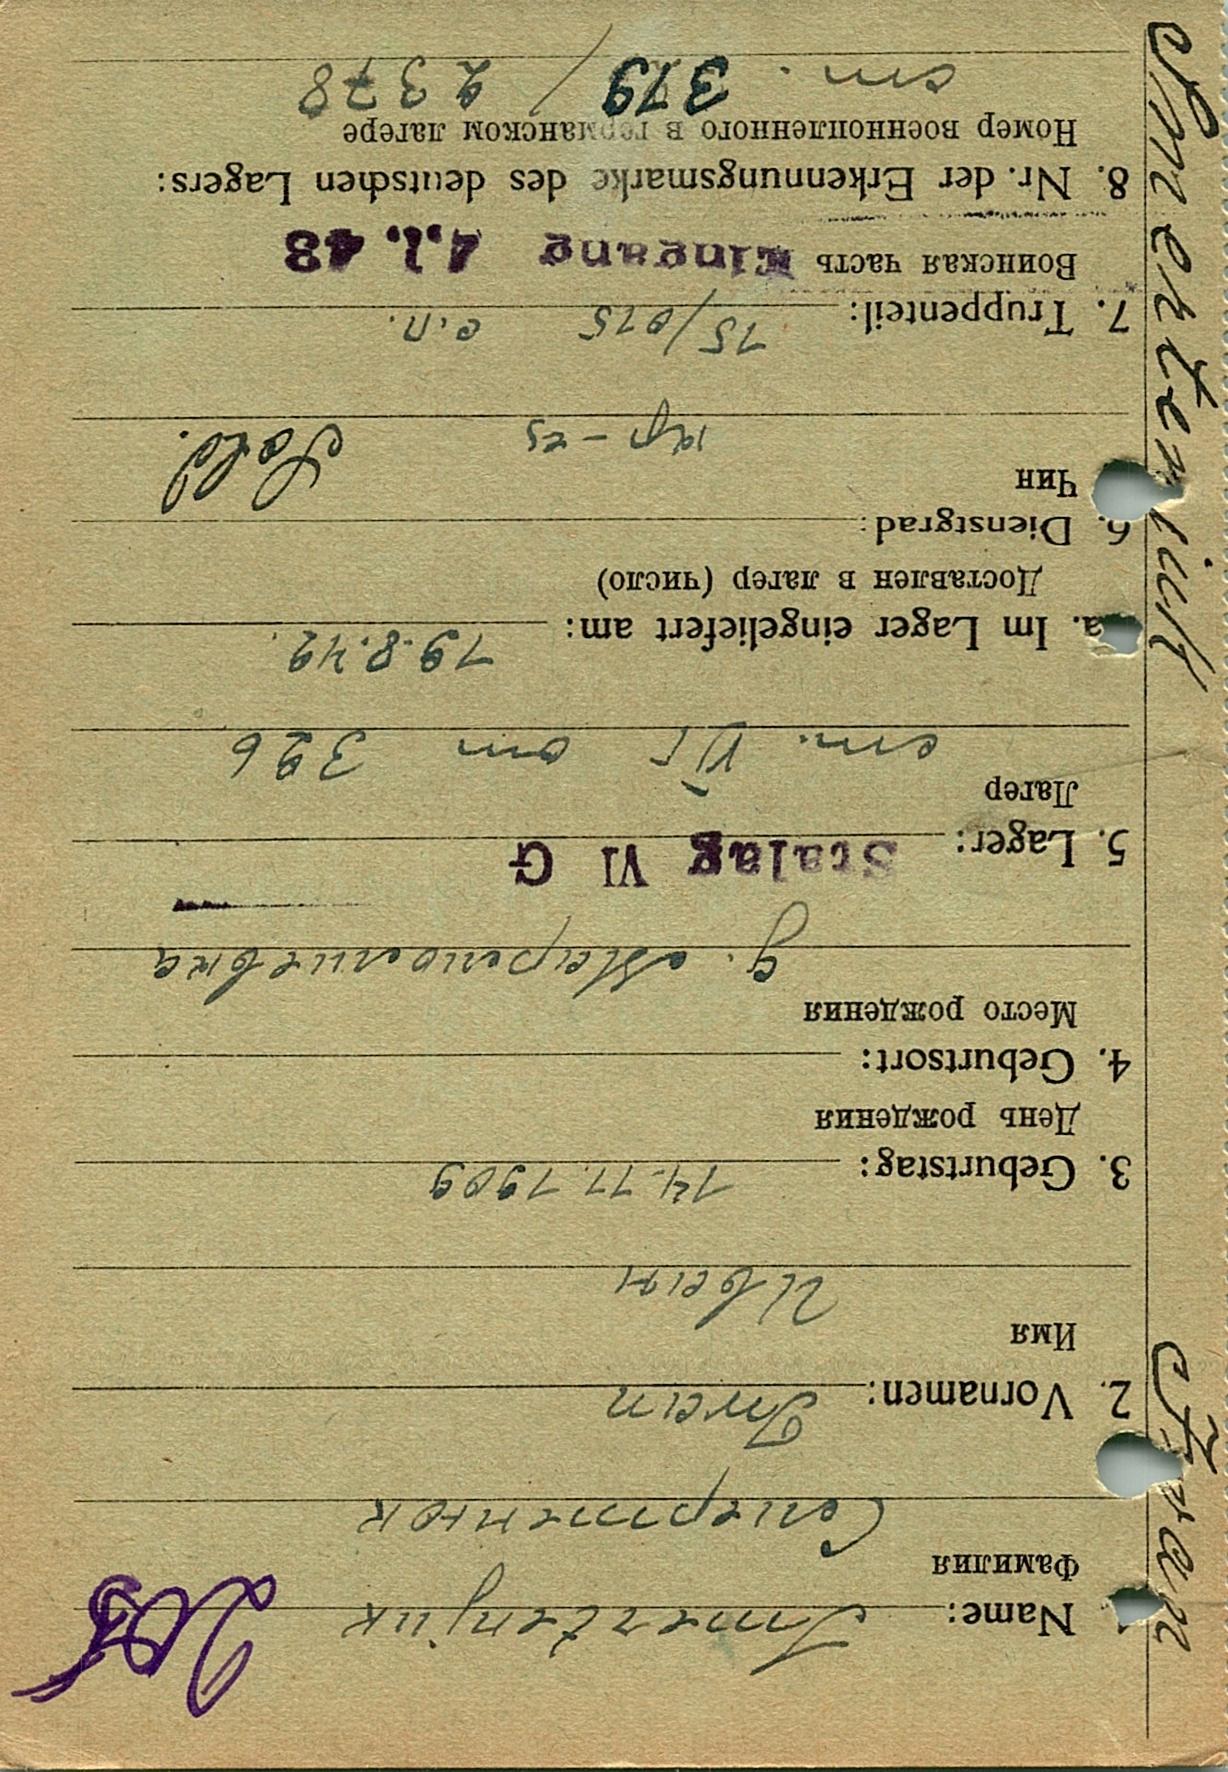 Smertenjuk Iwan
1. Name: Smertenjuk
Фамилия
Смертенюк
2. Vornamen: Iwan
Имя
Иван
3. Geburtstag: 14.11.1909
День рождения
4. Geburtsort:
Место рождения
д.
5. Lager: Stalag VI G
Лагер
шт. VIГ от 326
a. Im Lager eingeliefert am: 19.8.42.
Доставлен в лагер (число)
6. Dienstgrad:
Чин
кр-ец Sold.
7. Truppenteil: 15/015 с.п.
Воинская часть Eingang 4.1.43
8. Nr. der Erkennungsmarke des deutschen Lagers:
Номер военнопленного в германском лагере
шт. 379 / 2378